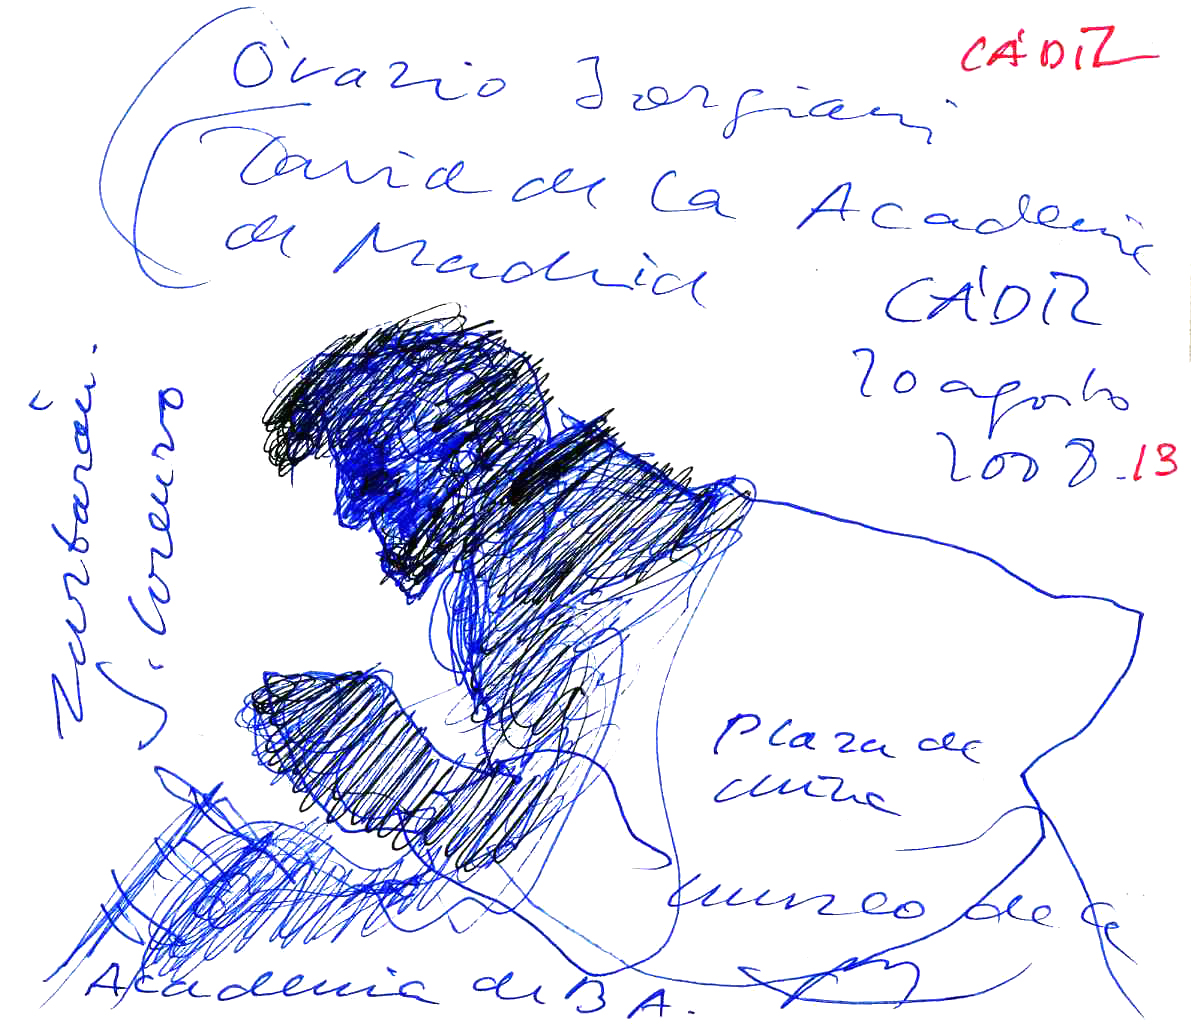 CÁDIZ
Orazio Borgiani
David de la Academia
de Madrid
CÁDIZ
20 agosto
2008.13
Zurbarán.
S. Lorenzo
Plaza de
mina
museo de
Academia de B A.